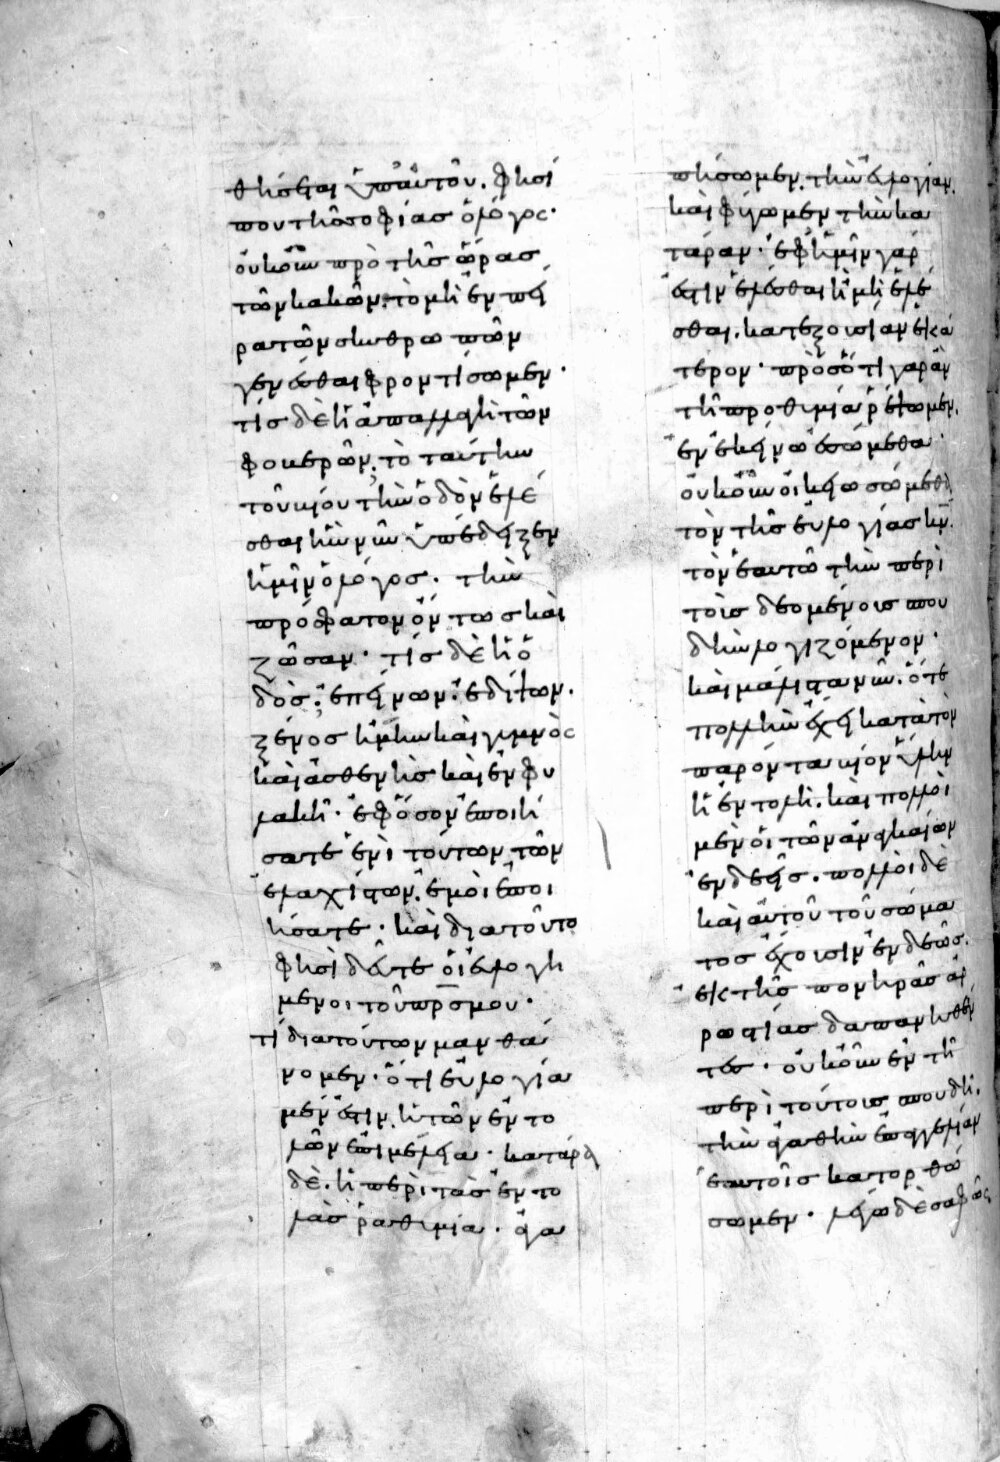 θήσεται ὑπ' αυτοῦ. φησί
που τῆς σοφίας ὁ λόγος·
οὐκοῦν πρὸ τῆς ὥρας
τῶν κακῶν. τὸ μὴ ἐν πεί
ρα τῶν σκυθρωπῶν
γενέσθαι φροντίσωμεν·
τίς δὲ ἡ ἀπαλλαγὴ τῶν
φοβερῶν; τὸ ταύτην
τοῦ βίου τὴν ὁδὸν ἑλέ
σθαι ἣν νῦν ὑπέδειξεν
ἡμῖν ὁ λόγος. τὴν
πρόσφατον ὄντως καὶ
ζῶσαν· τίς δὲ ἡ ὁ
δὸς; ἐπείνων. ἐδίψων.
ξένος ἤμην καὶ γυμνὸς
καὶ ἀσθενὴς καὶ ἐν φυ
λακῇ· ἐφ' ὅσον ἐποιή
σατε ἑνὶ τούτων τῶν
ἐλαχίστων. ἐμοὶ ἐποι
ήσατε· καὶ διὰ τοῦτο
φησὶ δεῦτε οἱ εὐλογη
μένοι τοῦ πρσ μου·
τί διὰ τούτων μανθά
νομεν· ὅτι εὐλογία
μέν ἐστιν. ἡ τῶν ἐντο
λῶν ἐπιμέλεια· κατάρα
δὲ. ἡ περὶ τὰς ἐντο
λὰς ῥαθυμία· ἀγα
πήσωμεν. τὴν εὐλογίαν.
καὶ φύγωμεν τὴν κα
τάραν· ἐφ' ἡμῖν γάρ
ἐστιν ἑλέσθαι ἢ μὴ ἑλέ
σθαι. κατ' ἐξουσίαν ἑκά
τερον· πρὸς ὅ τι γὰρ ἂν
τῇ προθυμίᾳ ῥέψωμεν.
ἐν ἐκείνω ἐσώμεθα·
οὐκοῦν οἰκειωσώμεθα
τὸν τῆς εὐλογίας κν.
τὸν ἑαυτῶ τὴν περὶ
τοῖς δεομένοις σπου
δὴν λογιζόμενον·
καὶ μάλιστα νῦν. ὅτε
πολλὴν ἔχει κατὰ τὸν
παρόντα βίον ὕλην
ἡ ἐντολή. καὶ πολλοὶ
μὲν οἱ τῶν ἀναγκαίων
ἐνδεεῖς. πολλοὶ δὲ
καὶ αὐτοῦ τοῦ σώμα
τος ἔχουσιν ἐνδεῶς.
ἐκ τῆς πονηρᾶς ἀρ
ρωστίας δαπανηθέν
τες· οὐκοῦν ἐν τῇ
περὶ τούτοις σπουδῇ.
τὴν ἀγαθὴν ἐπαγγελίαν
ἑαυτοῖς κατορθώ
σωμεν· λέγω δὲ σαφῶς